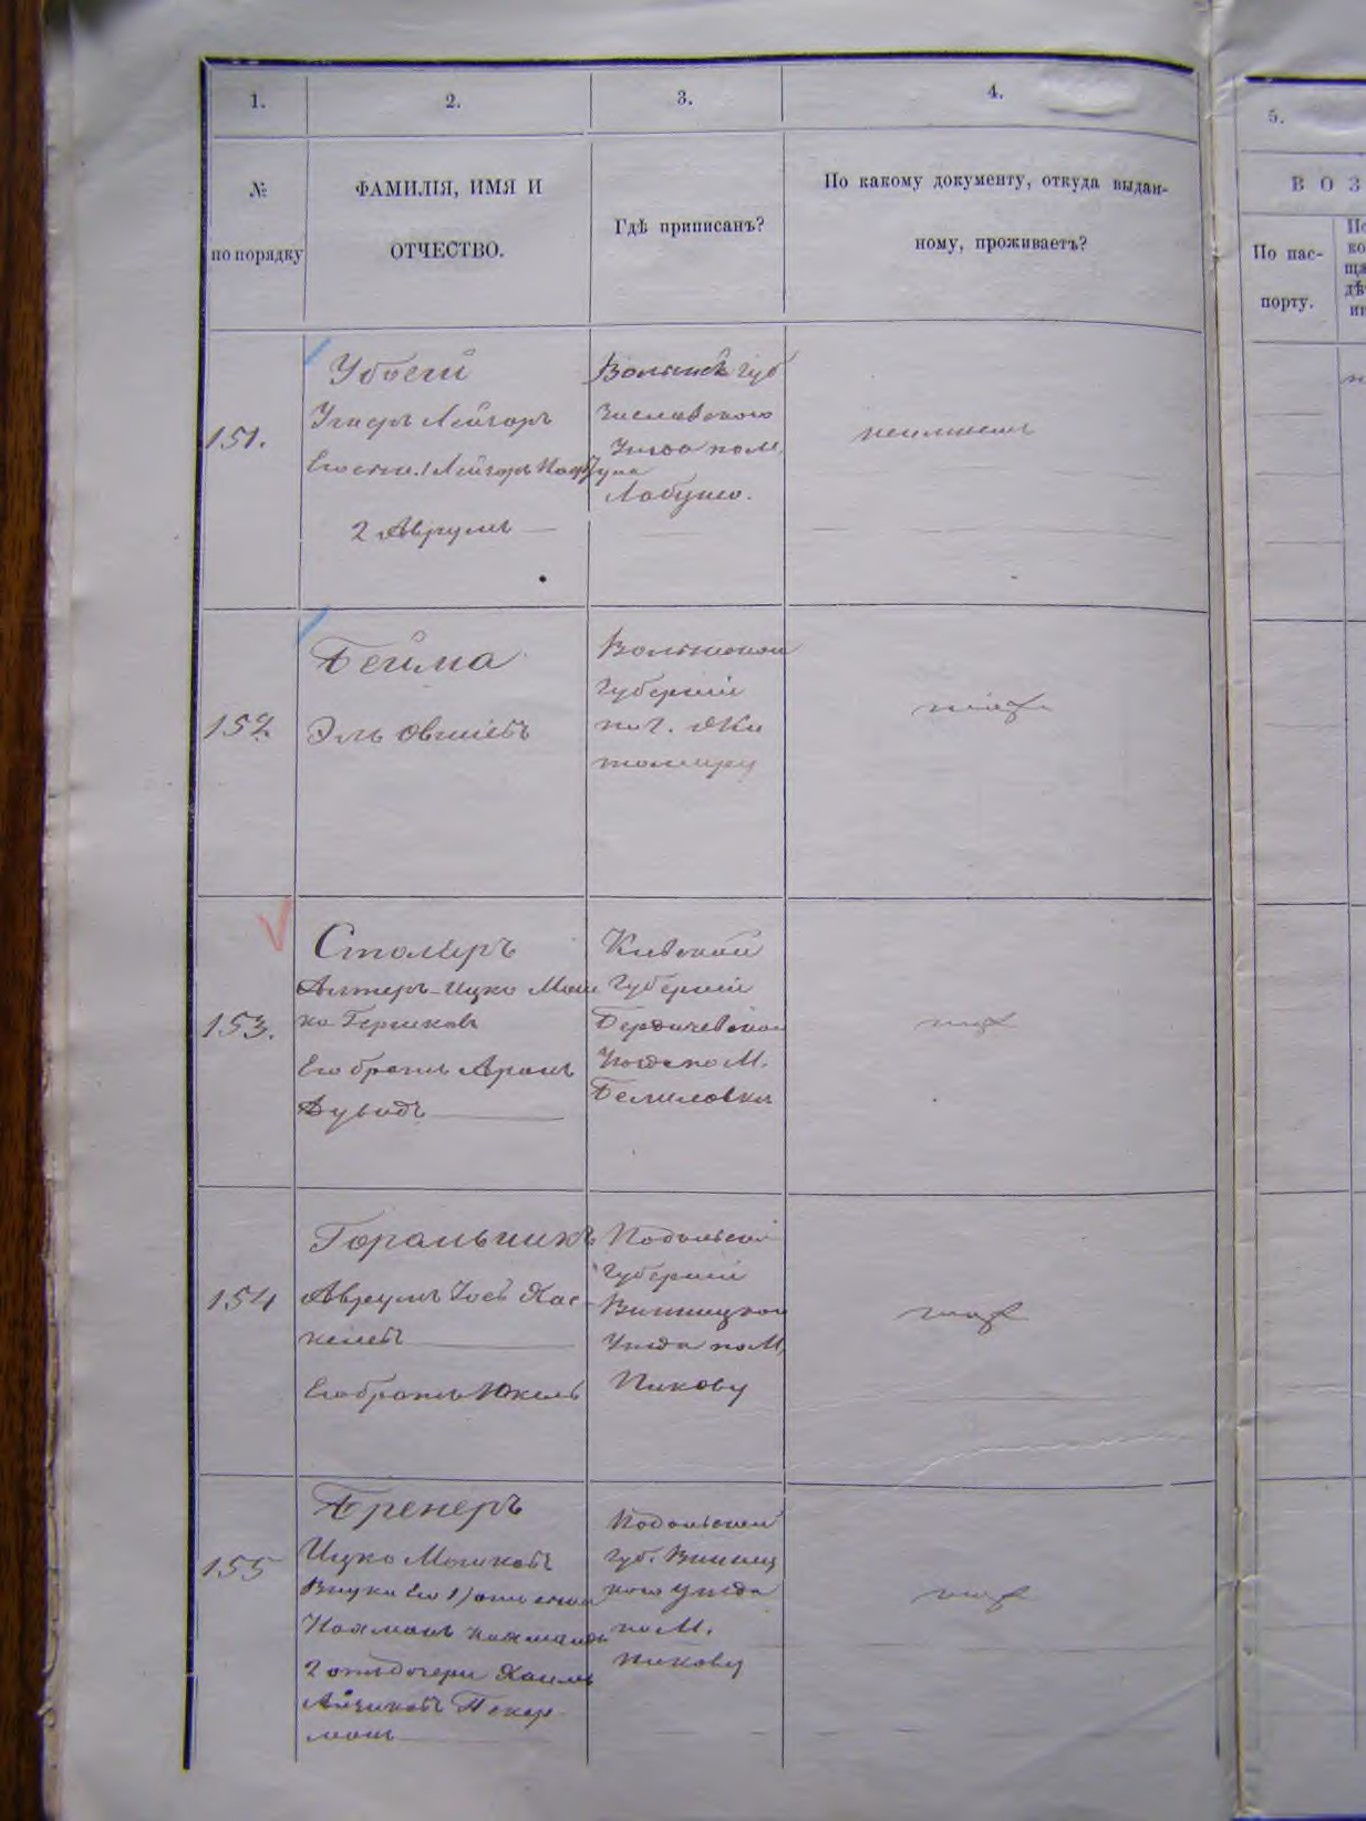 1.
2.
3.
4.
5.
№
по порядку
ФАМИЛІЯ, ИМЯ И
ОТЧЕСТВО.
Гдѣ приписанъ?
По какому документу, откуда выдан-
ному, проживаетъ?
ВОЗ
По пас-
порту.
151.
Лейзоръ
Его сын. 1 Лейзоръ
2 Аврумъ
Волынск губ
Заславского
Уѣзда по м.
Лабунь.
152
Бейма
Эль Овшіевъ
Волынской
Губерніи
по г. Жи
томиру
153.
Столяръ
Альтеръ-Ицко Мош
ко Гершковъ
Его братъ Аронъ
Дувидъ
Кіевской
Губерніи
Бердичевскаго
Уѣзда по М.
Белиловки
154
Горальникъ
Аврумъ Іосъ Хас
келевъ
Его братъ Юкель
Подольской
Губерніи
Винницкаго
Уѣзда по М.
Пикову
155
Бренеръ
Ицко Мошковъ
Внуки Его 1) отъ сына
Нахманъ
2 отъ дочери Хаимъ
Айзиковъ Пекер
манъ
Подольской
губ. Винниц
кого Уѣзда
по М.
Пикову